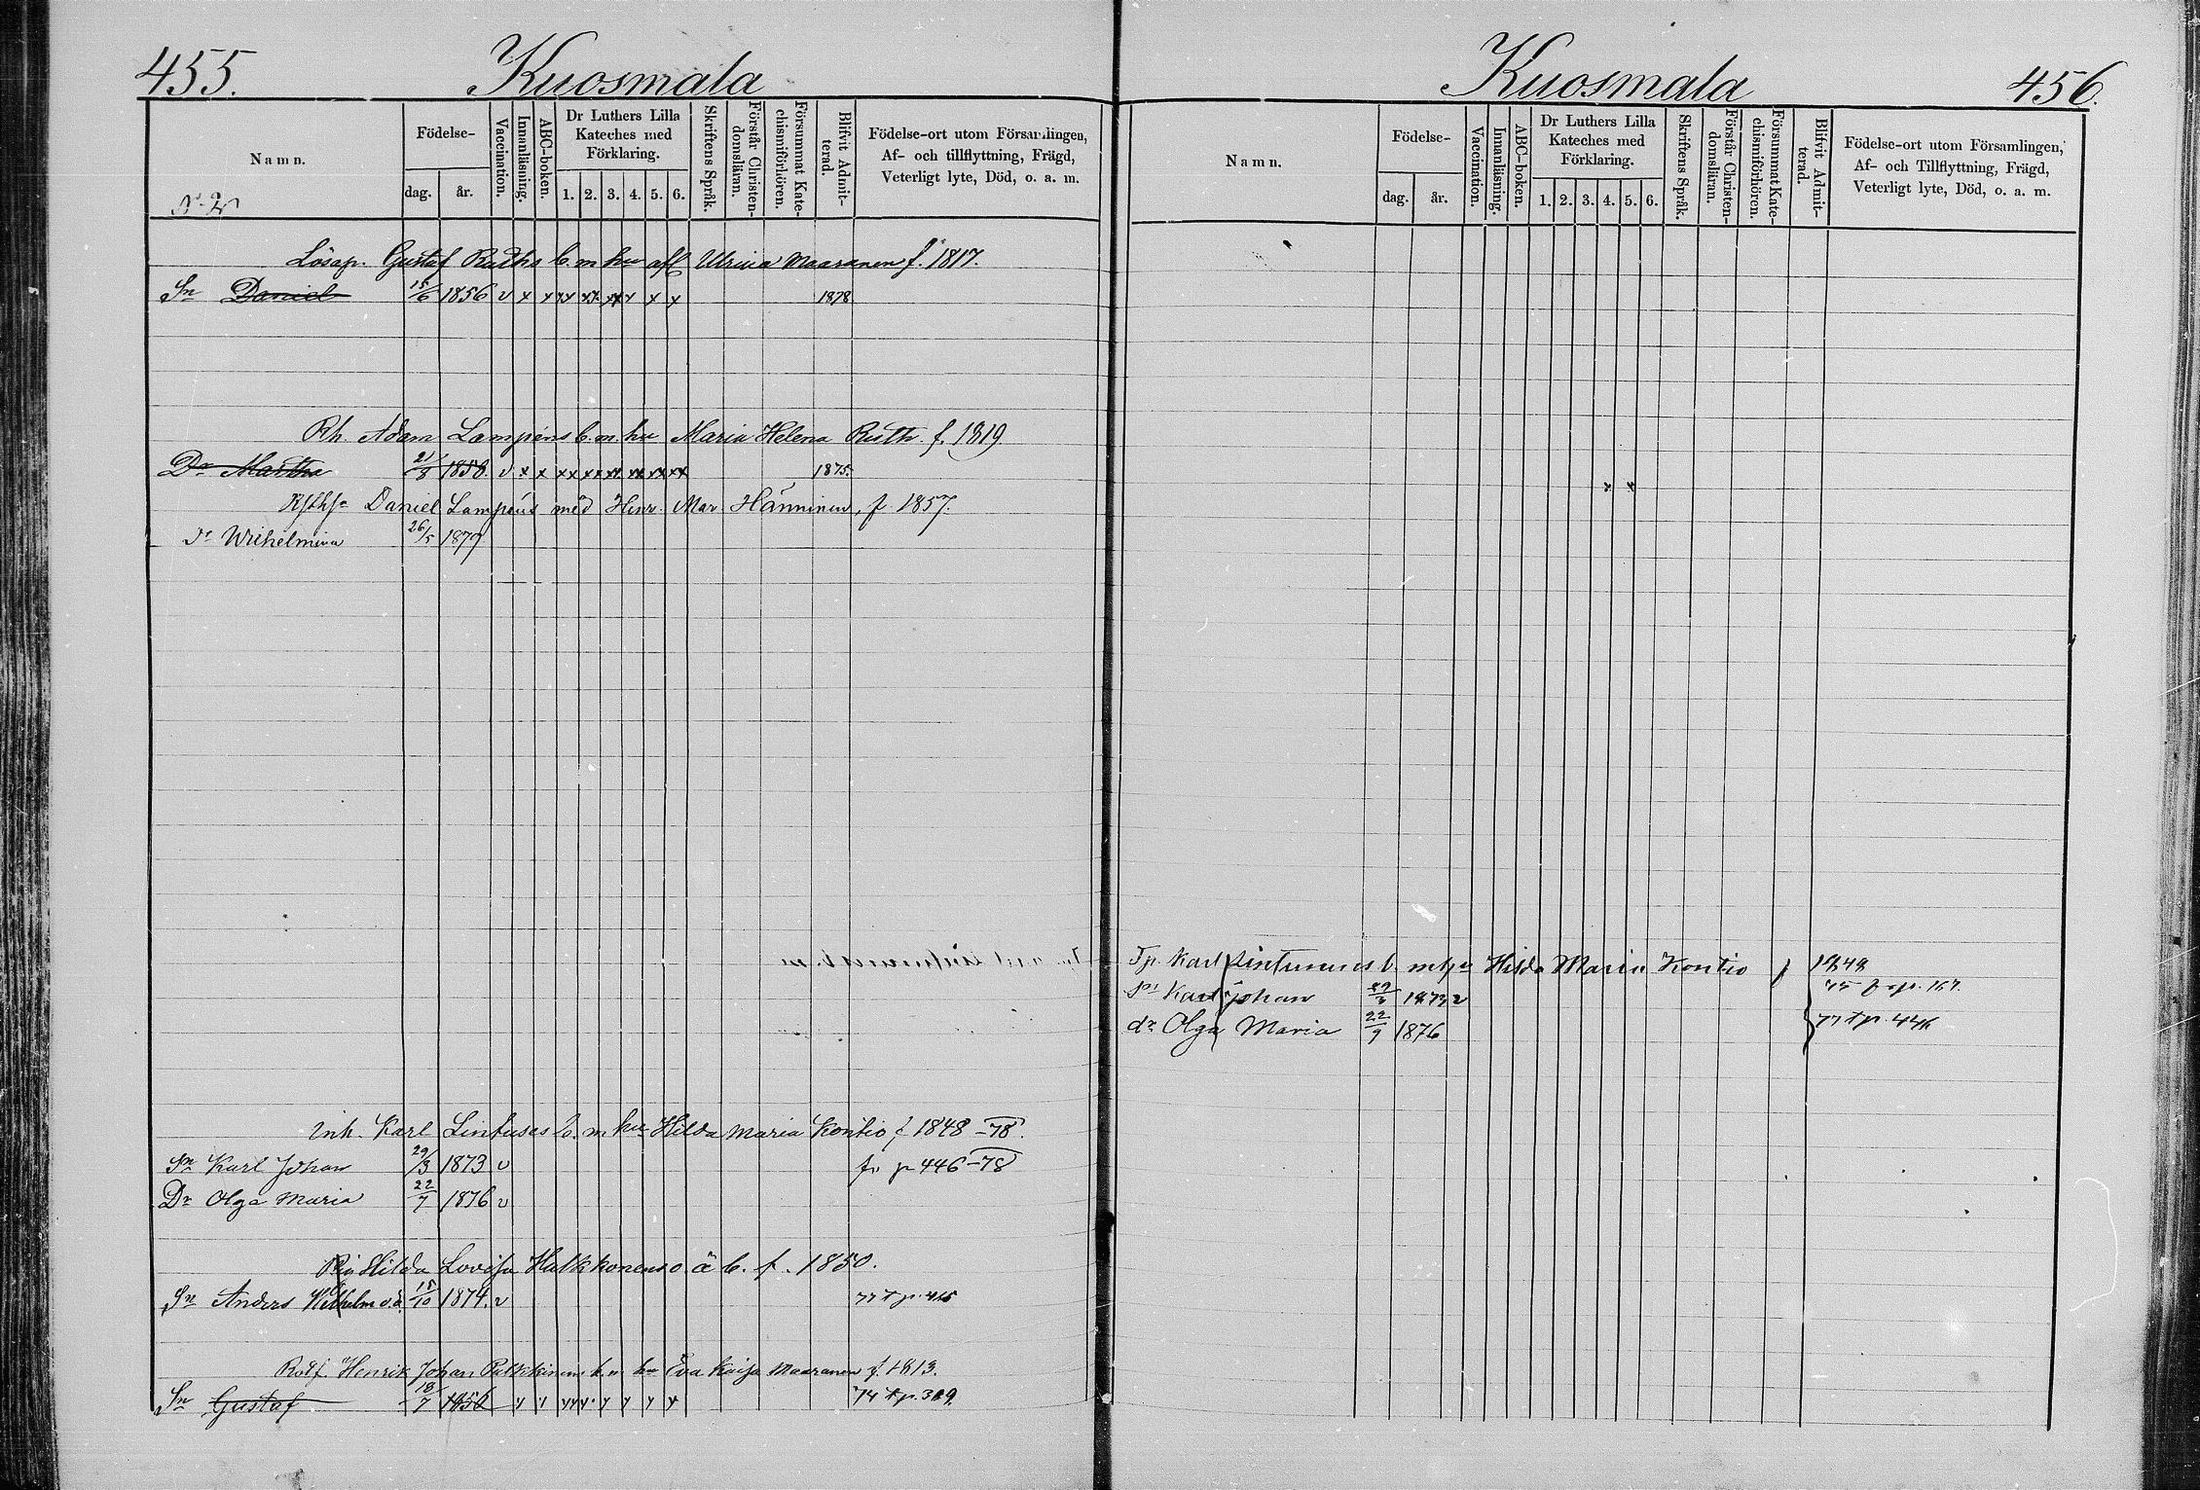 455. Kuosmala
Namn.
Födelse-
dag. år.
Vaccination.
Innanläsning.
ABC-boken.
Dr Luthers Lilla Kateches med Förklaring.
1. 2. 3. 4. 5. 6.
Skriftens Språk.
Förstår Christen-domsläran.
Försummat Kate-chismiförhören.
Blifvit Admit-terad.
Födelse-ort utom Församlingen,
Af- och tillflyttning, Frägd,
Veterligt lyte, Död, o. a. m.
N. 2
Lösap. Gustaf Ruths b. m hu afl Ulrica Maaranen f. 1817.
Sn Daniel 15/6 1856 v x x xx xx xx x x x 1878
Rh. Adam Lampéns b. m. hu Maria Helena Ruth. f. 1819
Dr Martha 21/8 1858. v x x xx xx xx xx xx xx 1875.
Daniel Lampéns med Henr. Mar Hänninen, f 1857.
dr Wilhelmina 26/5 1879
Inh. Karl Lintuses b. m hu Hilda Maria Kontio f 1848 -78.
Sn Karl Johan 29/3 1873 v fr p 446 -78
Dr Olga Maria 22/7 1876 v
Hilda Lovisa Hakkonens o ä b. f. 1850.
Sn Anders Wilhelm o.ä. 15/10 1874. v 77 t p. 415
Henrik Johan Pukkinens b. m hu Eva Kaisa Maaranen f. 1813.
Sn Gustaf 18/7 1856 74 t p. 319
Kuosmala 456.
Namn.
Födelse-
dag. år.
Vaccination.
Innanläsning.
ABC-boken.
Dr Luthers Lilla Kateches med Förklaring.
1. 2. 3. 4. 5. 6.
Skriftens Språk.
Förstår Christen-domsläran.
Försummat Kate-chismiförhören.
Blifvit Admit-terad.
Födelse-ort utom Församlingen,
Af- och Tillflyttning, Frägd,
Veterligt lyte, Död, o. a. m.
x x
Karl b. Hilda Maria Kontio f 1848
Karl Johan 29/3 1873 v 75 f. p. 167.
dr Olga Maria 22/7 1876 77 t p. 446